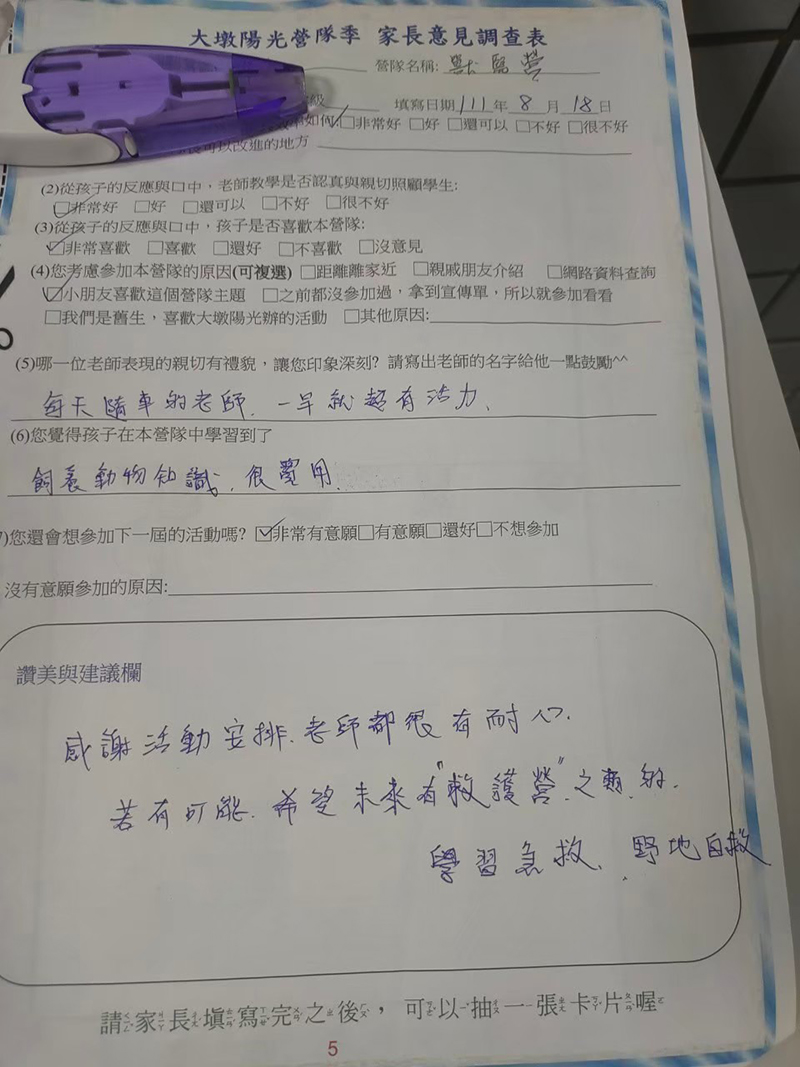 大墩陽光營隊季 家長意見調查表
營隊名稱: 獸醫營
級 填寫日期111年8月18日
如何: ☑非常好 □好 □還可以 □不好 □很不好
可以改進的地方
(2)從孩子的反應與口中，老師教學是否認真與親切照顧學生:
☑非常好 □好 □還可以 □不好 □很不好
(3)從孩子的反應與口中，孩子是否喜歡本營隊:
☑非常喜歡 □喜歡 □還好 □不喜歡 □沒意見
(4)您考慮參加本營隊的原因(可複選) □距離離家近 □親戚朋友介紹 □網路資料查詢
☑小朋友喜歡這個營隊主題 □之前都沒參加過，拿到宣傳單，所以就參加看看
□我們是舊生，喜歡大墩陽光辦的活動 □其他原因:
(5)哪一位老師表現的親切有禮貌，讓您印象深刻? 請寫出老師的名字給他一點鼓勵^^
每天隨車的老師、一早就超有活力、
(6)您覺得孩子在本營隊中學習到了
飼養動物知識、很實用
)您還會想參加下一屆的活動嗎? ☑非常有意願□有意願□還好□不想參加
沒有意願參加的原因:
讚美與建議欄
感謝活動安排、老師都很有耐心、
若有可能、希望未來有"救護營"之類的、
學習急救、野地自救
請家長填寫完之後，可以抽一張卡片喔
5